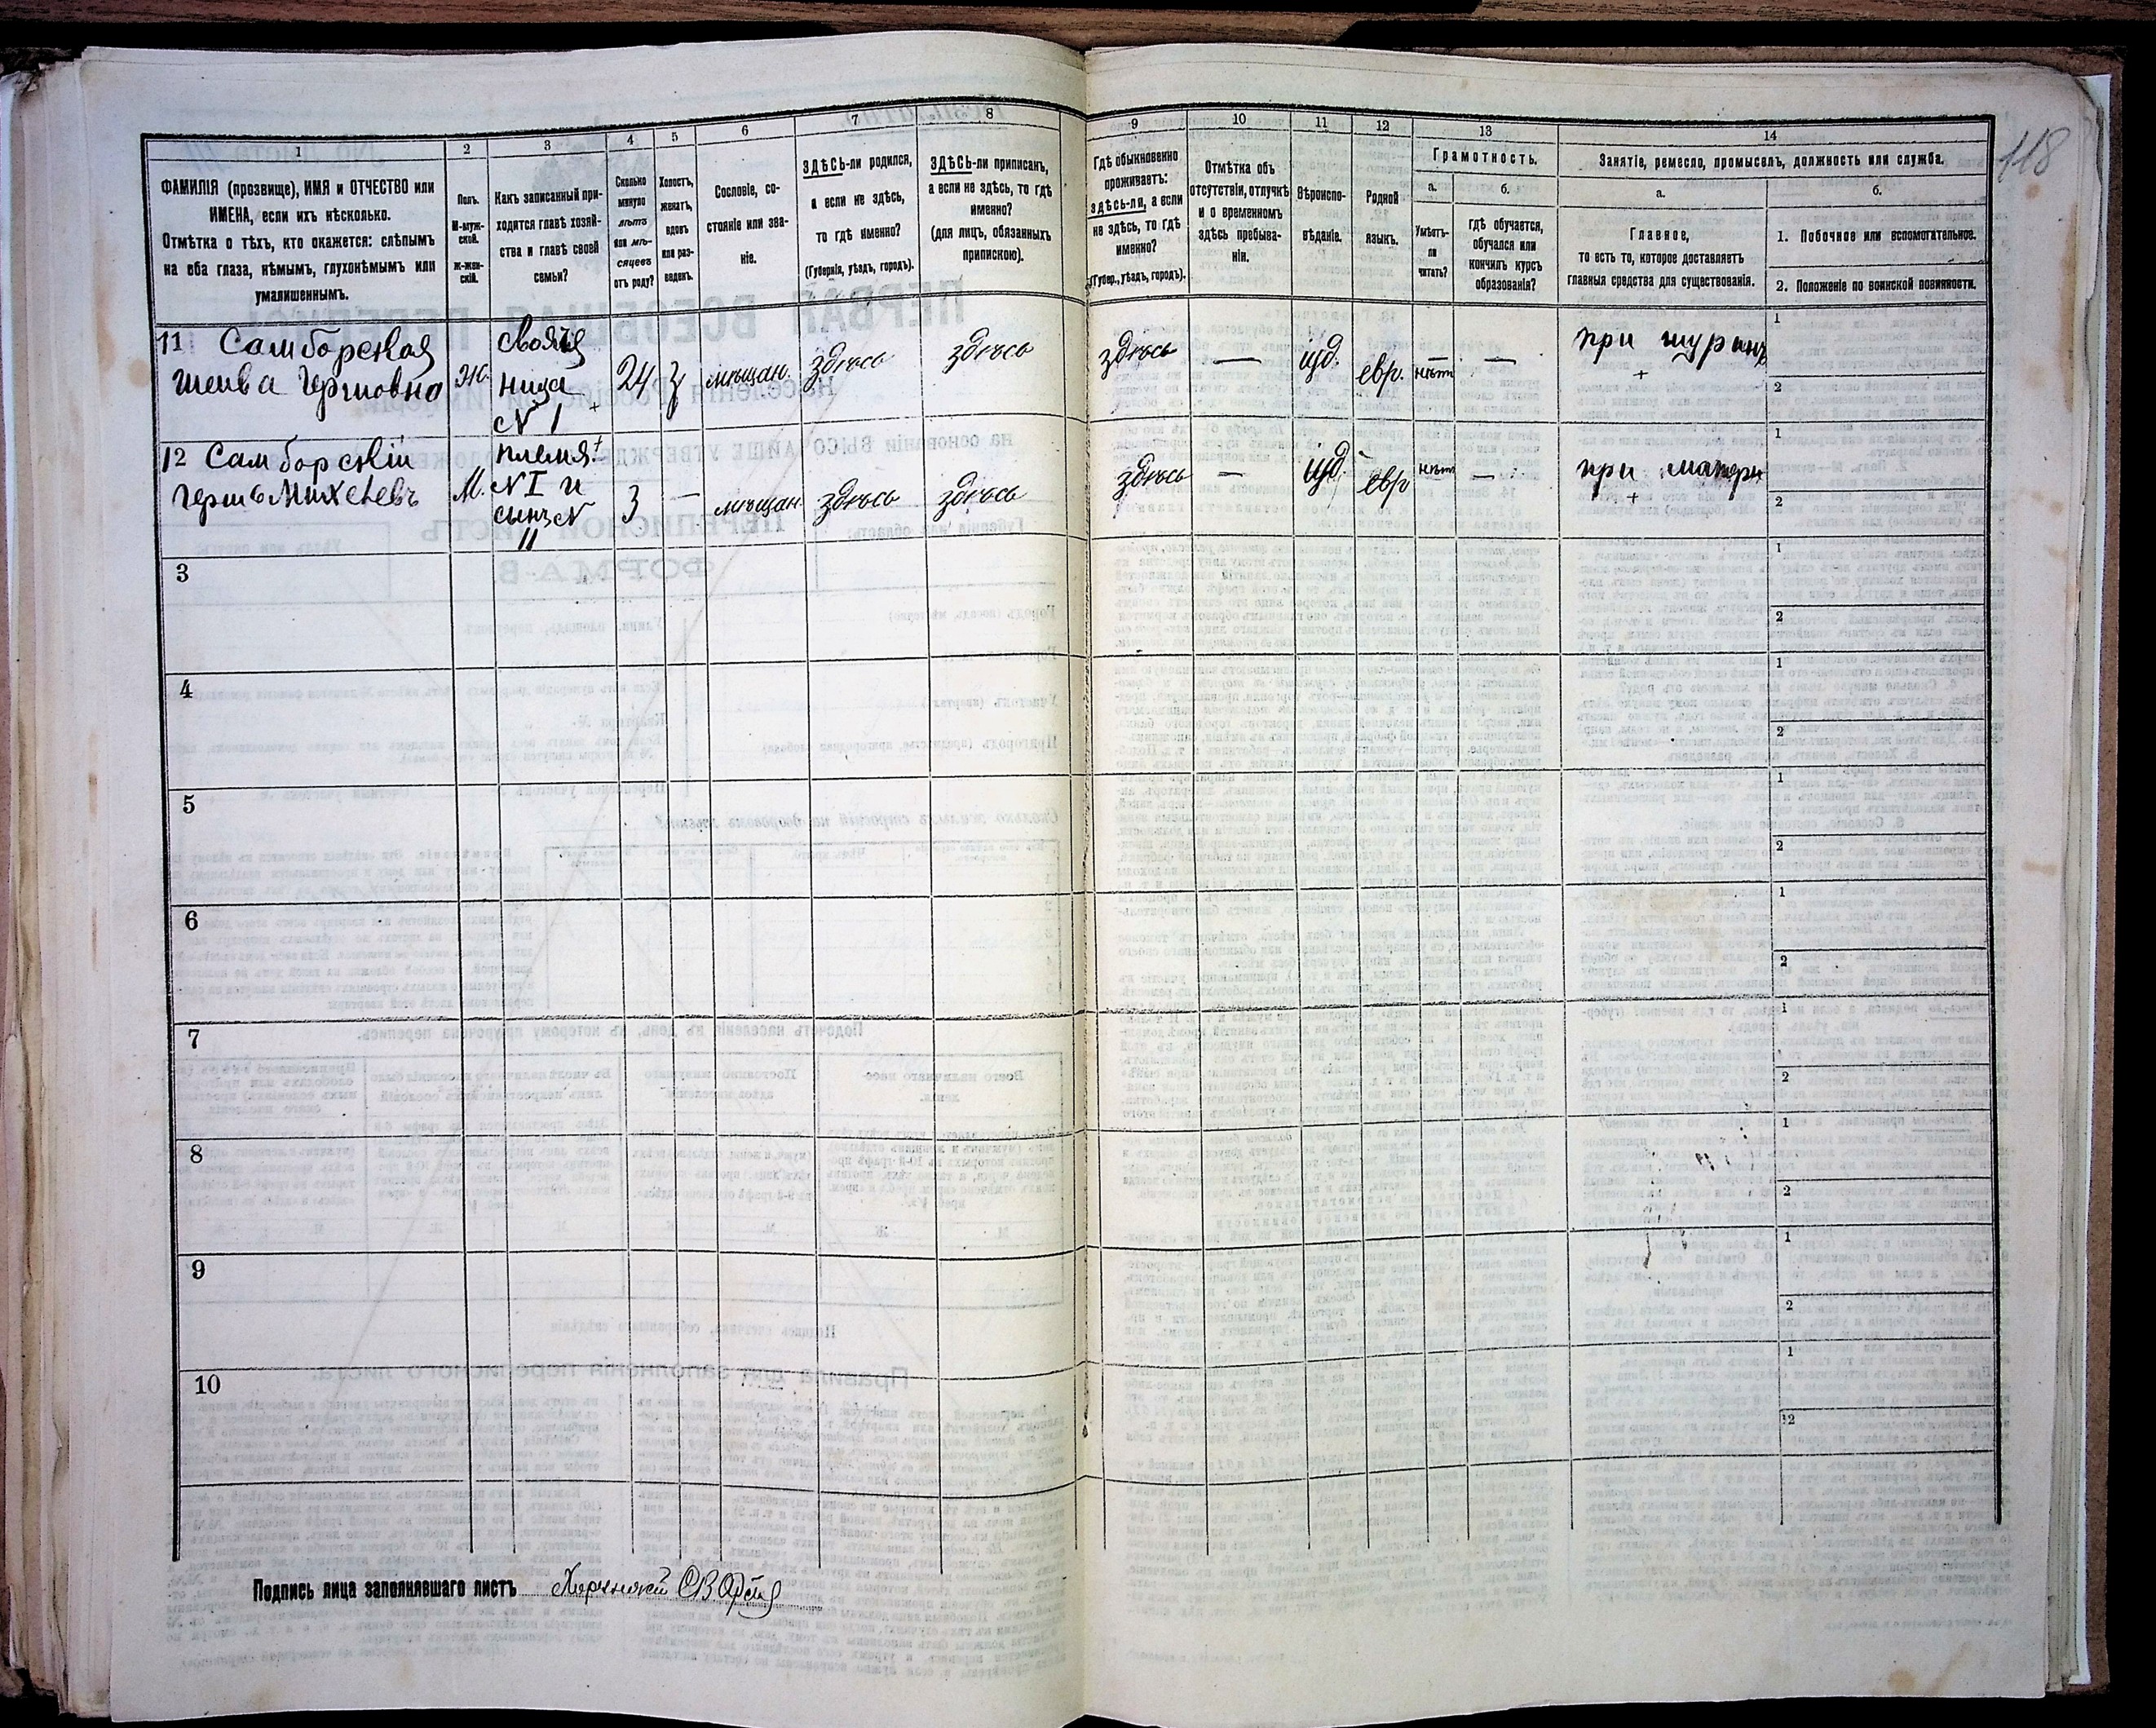 118
1
2
3
4
5
6
7
8
9
10
11
12
13
14
ФАМИЛІЯ (прозвище), ИМЯ и ОТЧЕСТВО или
ИМЕНА, если ихъ нѣсколько.
Отмѣтка о тѣхъ, кто окажется: слѣпымъ
на оба глаза, нѣмымъ, глухонѣмымъ или
умалишеннымъ.
Полъ.
М-муж-
ской.
Ж-жен-
скій.
Какъ записанный при-
ходится главѣ хозяй-
ства и главѣ своей
семьи?
Сколько
минуло
лѣтъ
или мѣ-
сяцевъ
отъ роду?
Холостъ,
женатъ,
вдовъ
или раз-
веденъ.
Сословіе, со-
стояніе или зва-
ніе.
ЗДѢСЬ-ли родился,
а если не здѣсь,
то гдѣ именно?
(Губернія, уѣздъ, городъ).
ЗДѢСЬ-ли приписанъ,
а если не здѣсь, то гдѣ
именно?
(для лицъ, обязанныхъ
припискою).
Гдѣ обыкновенно
проживаетъ:
здѣсь-ли, а если
не здѣсь, то гдѣ
именно?
(Губер., уѣздъ, городъ).
Отмѣтка объ
отсутствіи, отлучкѣ
и о временномъ
здѣсь пребыва-
ніи.
Вѣроиспо-
вѣданіе.
Родной
языкъ.
Грамотность.
а.
Умѣетъ-
ли
читать?
б.
Гдѣ обучается,
обучался или
кончилъ курсъ
образованія?
Занятіе, ремесло, промыселъ, должность или служба.
а.
Главное,
то есть то, которое доставляетъ
главныя средства для существованія.
б.
1. Побочное или вспомогательное.
2. Положеніе по воинской повинности.
11 Самборская
Шейва Гершовна
Ж.
свояче
ница
N 1
24
з
мѣщан.
здѣсь
здѣсь
здѣсь
—
іуд.
евр.
нѣтъ
—
при шуринѣ
1
2
12 Самборскій
Гершъ Михелевъ
М.
племя.
N I и
сынъ N
11
3
—
мѣщан.
здѣсь
здѣсь
здѣсь
—
іуд.
евр
нѣтъ
—
при матери
1
2
3
1
2
4
1
2
5
1
2
6
1
2
7
1
2
8
1
2
9
1
2
10
1
2
Подпись лица заполнявшаго листъ